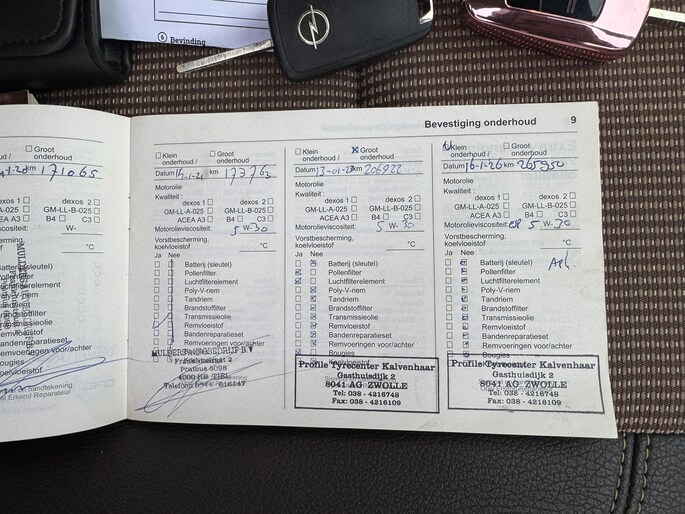 6 Bevinding
Bevestiging onderhoud 9
Groot
onderhoud
km 171065
dexos 2
GM-LL-B-025
C3
W-
°C
Klein onderhoud / Groot onderhoud
Datum km 173763
Motorolie
Kwaliteit :
dexos 1 dexos 2
GM-LL-A-025 GM-LL-B-025
ACEA A3 B4 C3
Motorolieviscositeit: 5 W-30
Vorstbescherming,
koelvloeistof °C
Ja Nee
Batterij (sleutel)
Pollenfilter
Luchtfilterelement
Poly-V-riem
Tandriem
Brandstoffilter
Transmissieolie
Remvloeistof
Bandenreparatieset
Remvoeringen voor/achter
Postbus 6098
4000 HB TIEL
Klein onderhoud / Groot onderhoud
Datum 13-01-23 km 206922
Motorolie
Kwaliteit :
dexos 1 dexos 2
GM-LL-A-025 GM-LL-B-025
ACEA A3 B4 C3
Motorolieviscositeit: 5 W-30
Vorstbescherming,
koelvloeistof °C
Ja Nee
Batterij (sleutel)
Pollenfilter
Luchtfilterelement
Poly-V-riem
Tandriem
Brandstoffilter
Transmissieolie
Remvloeistof
Bandenreparatieset
Remvoeringen voor/achter
Bougies
Profile Tyrecenter Kalvenhaar
Gasthuisdijk 2
8041 AG ZWOLLE
Tel: 038 - 4216748
Fax: 038 - 4216109
Klein onderhoud / Groot onderhoud
Datum 16-1-26 km 265950
Motorolie
Kwaliteit :
dexos 1 dexos 2
GM-LL-A-025 GM-LL-B-025
ACEA A3 B4 C3
Motorolieviscositeit: 5 W-30
Vorstbescherming,
koelvloeistof °C
Ja Nee
Batterij (sleutel)
Pollenfilter
Luchtfilterelement
Poly-V-riem
Tandriem
Brandstoffilter
Transmissieolie
Remvloeistof
Bandenreparatieset
Remvoeringen voor/achter
Bougies
Profile Tyrecenter Kalvenhaar
Gasthuisdijk 2
8041 AG ZWOLLE
Tel: 038 - 4216748
Fax: 038 - 4216109